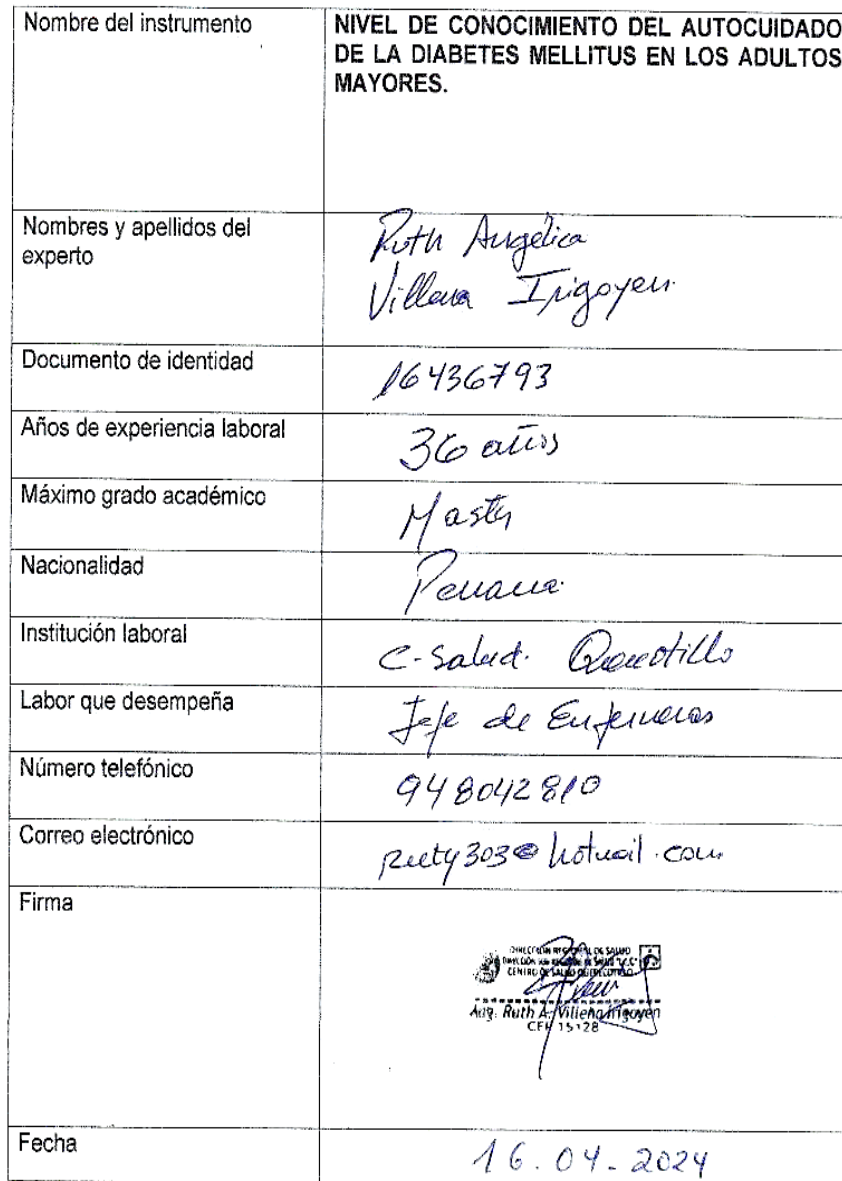 Nombre del instrumento
NIVEL DE CONOCIMIENTO DEL AUTOCUIDADO
DE LA DIABETES MELLITUS EN LOS ADULTOS
MAYORES.
Nombres y apellidos del
experto
Ruth Angélica
Villena Irigoyen
Documento de identidad
16436793
Años de experiencia laboral
36 años
Máximo grado académico
Master
Nacionalidad
Peruana
Institución laboral
C. Salud. Querotillo
Labor que desempeña
Jefe de Enfermeras
Número telefónico
948042810
Correo electrónico
ruty303@hotmail.com
Firma
DIRECCION REGIONAL DE SALUD
CENTRO DE SALUD
Ruth A. Villena Irigoyen
CEP 15128
Fecha
16.04.2024